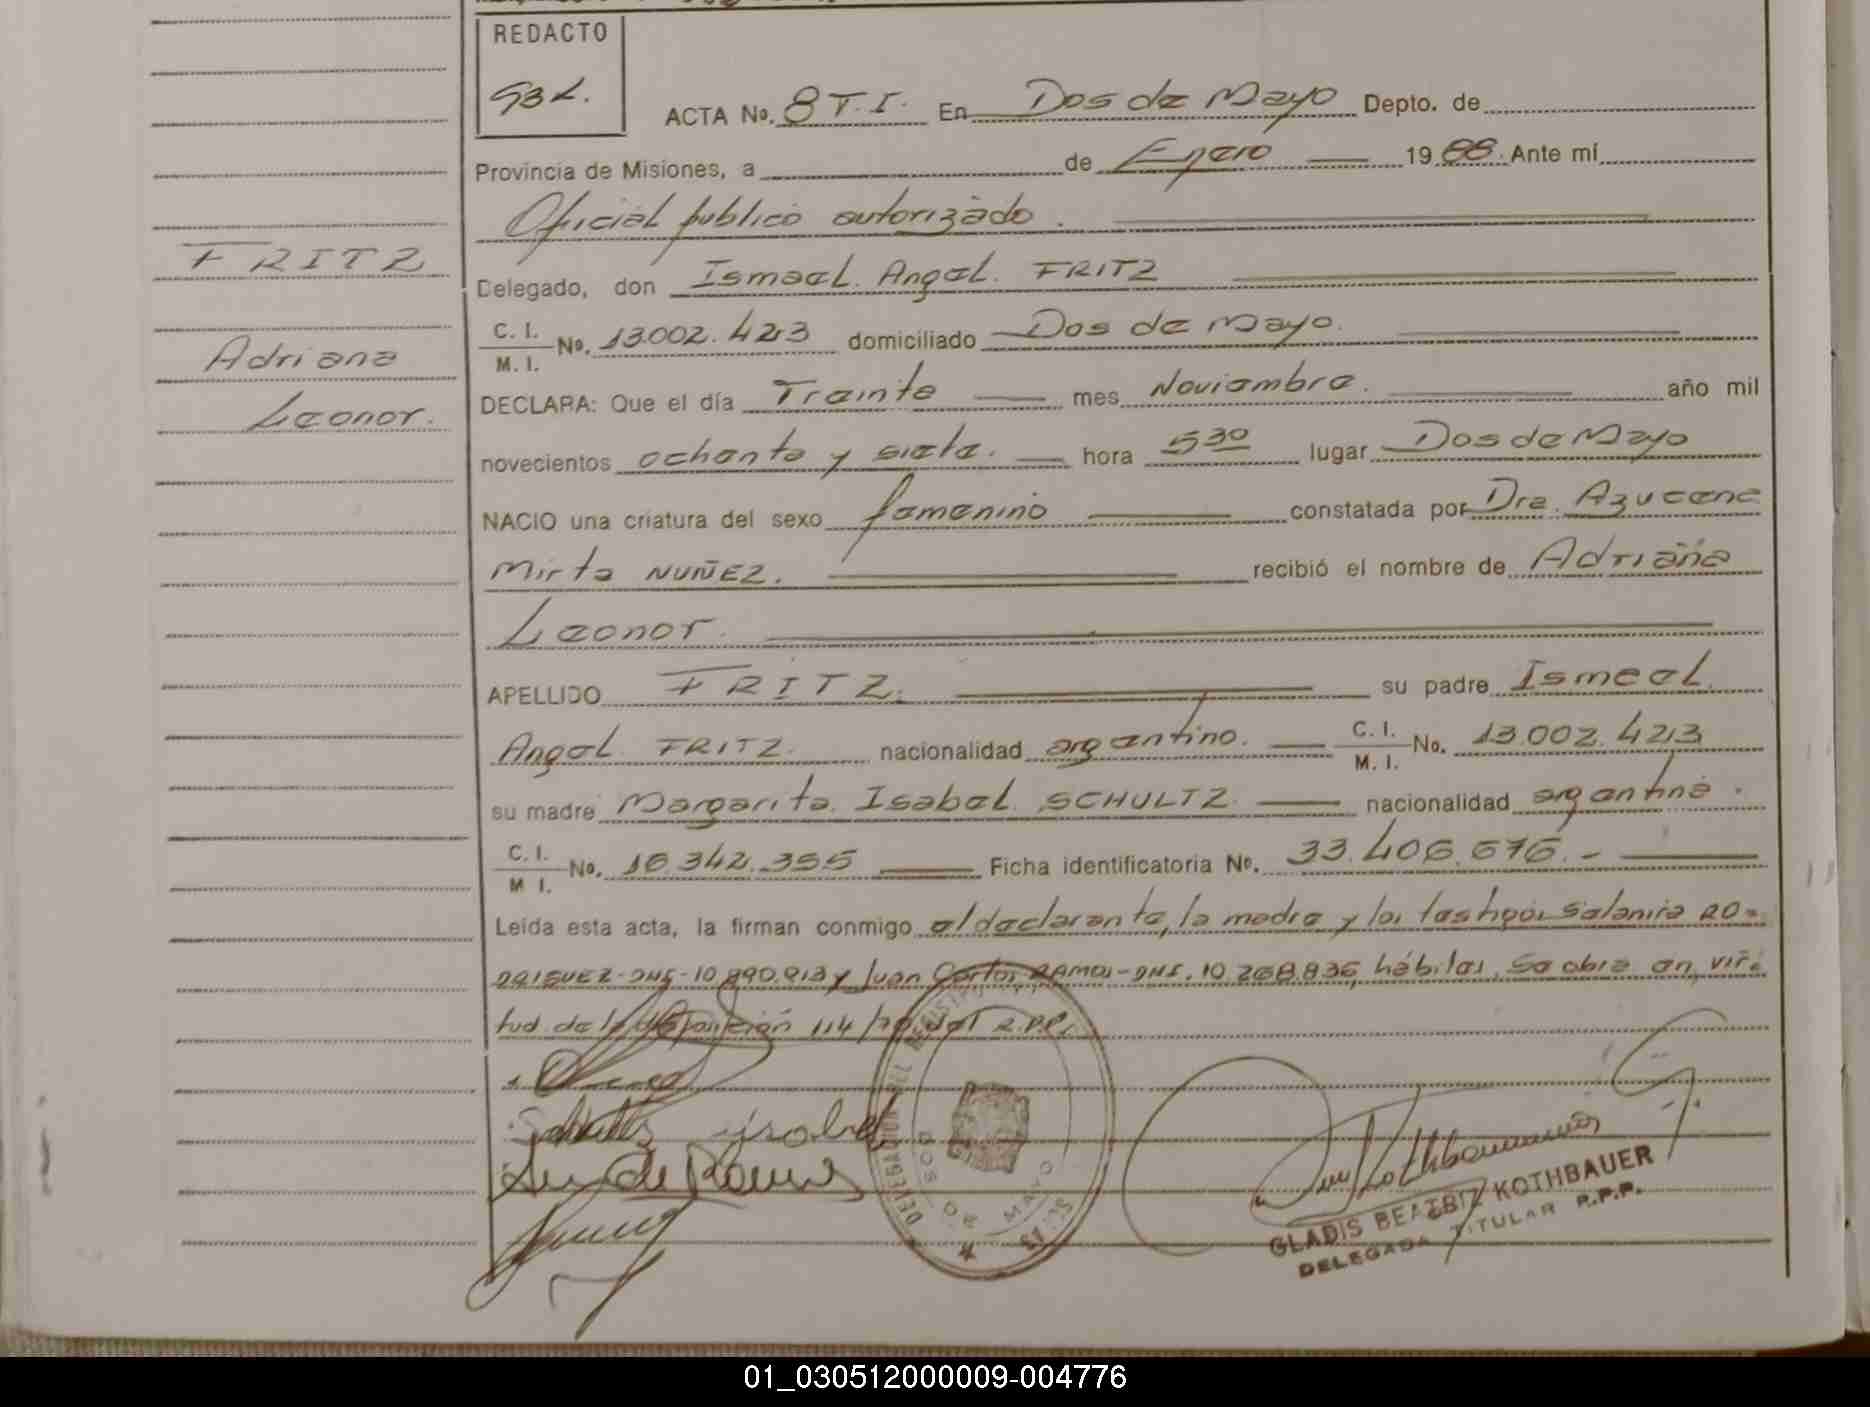 REDACTO
ACTA No. 8 T.I. En Dos de Mayo Depto. de
Provincia de Misiones, a de Enero 1988. Ante mí
Oficial público autorizado.
FRITZ
Delegado, don Ismael Angel FRITZ
C. I. M. I. No. 13.002.423 domiciliado Dos de Mayo.
Adriana
DECLARA: Que el día Treinta mes Noviembre. año mil
Leonor.
novecientos ochenta y siete. hora 5 30 lugar Dos de Mayo
NACIO una criatura del sexo femenino constatada por Dra. Azucena
Mirta NUÑEZ. recibió el nombre de Adriana
Leonor.
APELLIDO FRITZ. su padre Ismael
Angel FRITZ. nacionalidad argentino. C. I. M. I. No. 13.002.423
su madre Margarita Isabel SCHULTZ nacionalidad argentina.
C. I. M I. No. 16.342.355 Ficha identificatoria No. 33.406.676.-
Leída esta acta, la firman conmigo el declarante, la madre y los testigos RO-
DRIGUEZ-DNI-10.890.913 y Juan Carlos RAMOS-DNI. 10.268.836, hábiles. Se obra en vir-
tud de la disposición 114/79 del R.P.P.
Schultz Isabel
DELEGACION DEL REGISTRO
DOS DE MAYO
GLADIS BEATRIZ KOTHBAUER
DELEGADA TITULAR R.P.P.
01_030512000009-004776